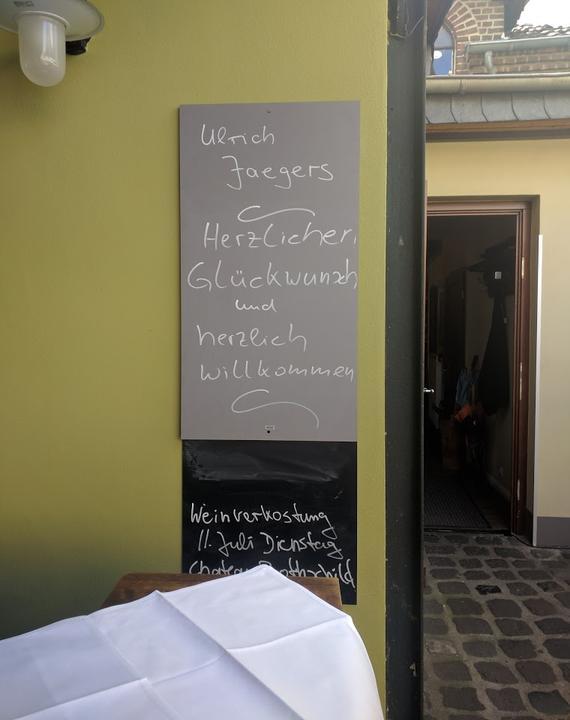 Ulrich
Jaegers
Herzlicher
Glückwunsch
und
herzlich
willkommen
Weinverkostung
11. Juli Dienstag
Chateau Rothschild